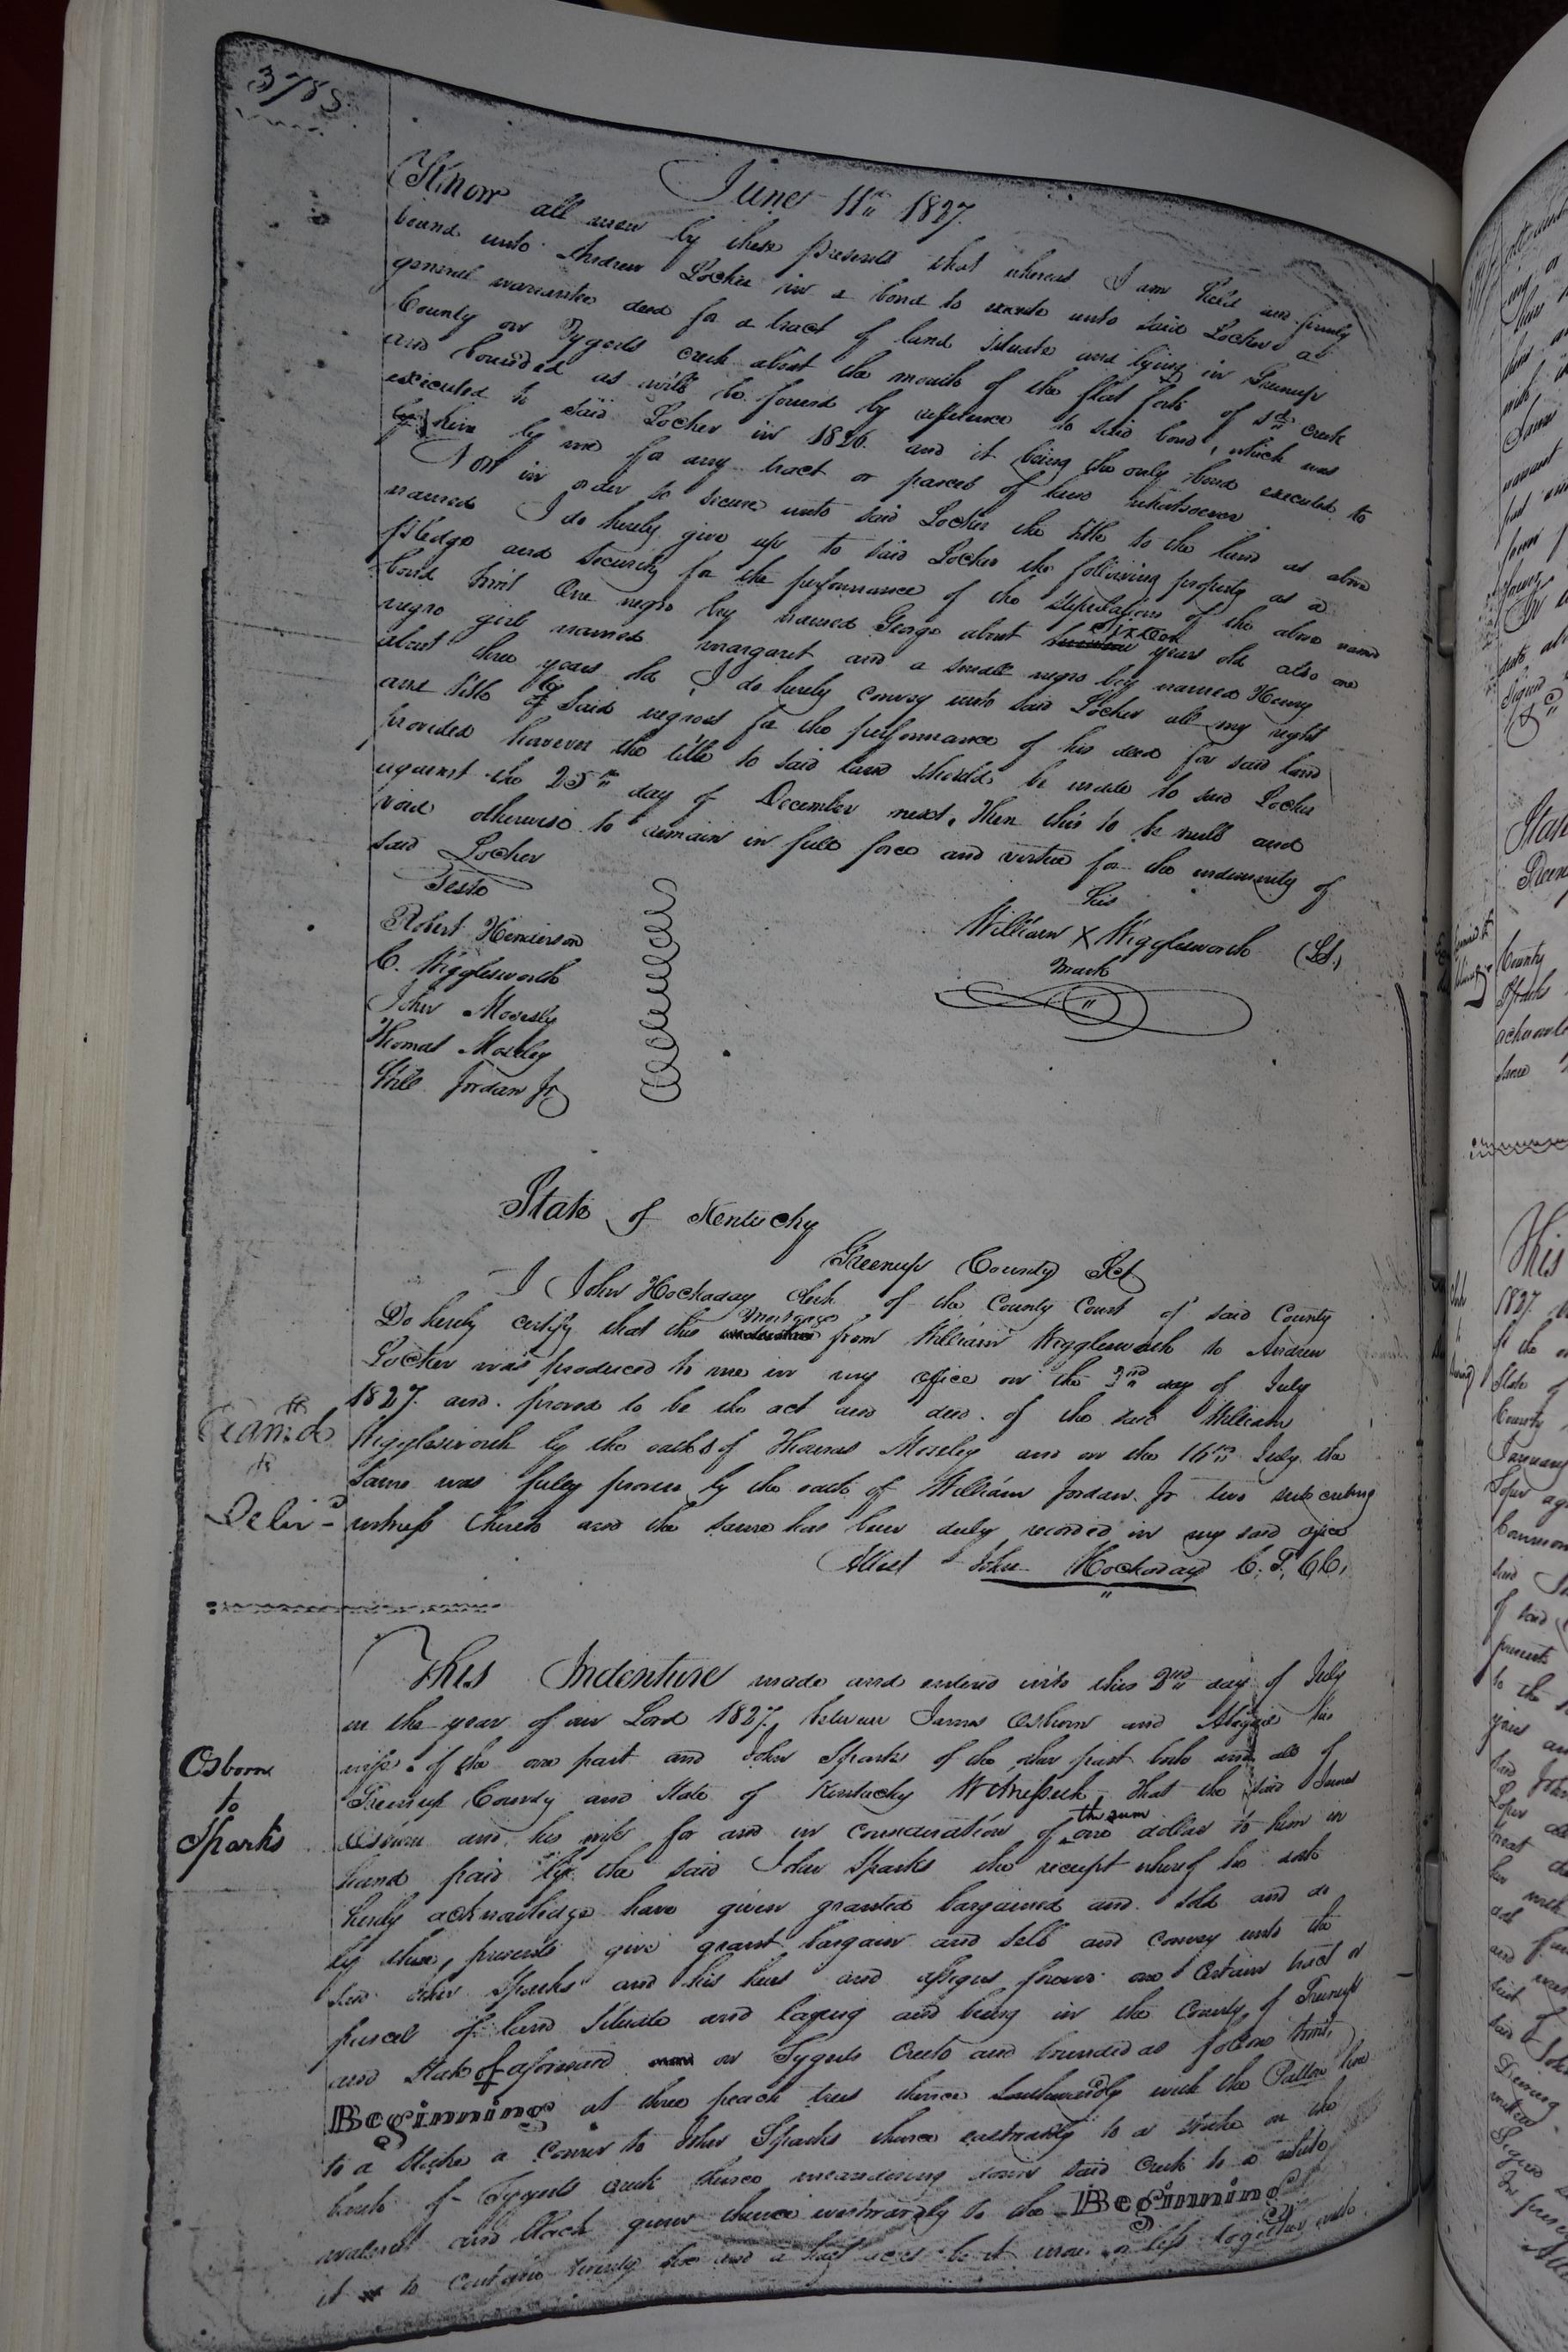 June 11th 1827.
Know all men by these presents that whereas I am held and firmly
bound unto Andrew Locher in a bond to execute unto said Locher a
general warrantee deed for a tract of land situate and lying in Greenup
County on Tygerts creek about the mouth of the flat fork of sd creek
and bounded as will be found by reference to said bond, which was
executed to said Locher in 1826. and it being the only bond executed to
him by me for any tract or parcel of land whatsoever
Now in order to secure unto said Locher the title to the land as above
named I do hereby give up to said Locher the following property as a
pledge and security for the performance of the stipulations of the above named
bond Viz One negro boy named George about sixteen years old also one
negro girl named margaret and a small negro boy named Henry
about three years old, I do hereby convey unto said Locher all my right
and title to said negroes for the performance of his deed for said land
provided however the title to said land should be made to said Locher
against the 25th day of December next, Then this to be null and
void otherwise to remain in full force and virtue for the indemnity of
said Locher
Teste
his
Robert Henderson
William X Wigglesworth (LS,)
mark
C. Wigglesworth
John Mosesly
Thomas Moseley
Will Jordan Jr
State of Kentucky
Greenup County Sct
I John Hockaday clerk of the County Court of said County
Do hereby certify that this mortgage from William Wigglesworth to Andrew
Locher was produced to me in my office on the 2nd day of July
1827. and proved to be the act and deed of the said William
Wigglesworth by the oath of Thomas Moseley and on the 16th July the
same was fully proven by the oath of William Jordan Jr two subscribing
witness thereto and the same has been duly recorded in my said office
Exam.d
&
Deliv.d
Attest John Hockaday C. G. C C,
Osborn
to
Sparks
This Indenture made and entered into this 2nd day of July
in the year of our Lord 1827, between James Osborn and Abigail his
wife of the one part and John Sparks of the other part both and all of
Greenup County and State of Kentucky Witnesseth, That the said James
Osborn and his wife for and in consideration of the sum one dollar to him in
hand paid by the said John Sparks the receipt whereof he doth
hereby acknowledge have given granted bargained and sold and do
by these presents give grant bargain and sell and convey unto the
said John Sparks and his heirs and assigns forever one certain tract or
parcel of land situate and laying and being in the County of Greenup
and State of aforesaid on Tygerts Creek and bounded as follows
Beginning at three peach trees thence southwardly with the Patton line
to a stake a corner to John Sparks thence eastwardly to a stake on the
bank of Tygerts creek thence meandering down said Creek to a white
walnut and black gum thence westwardly to the Beginning
it to contain twenty two and a half acres be it more or less together with